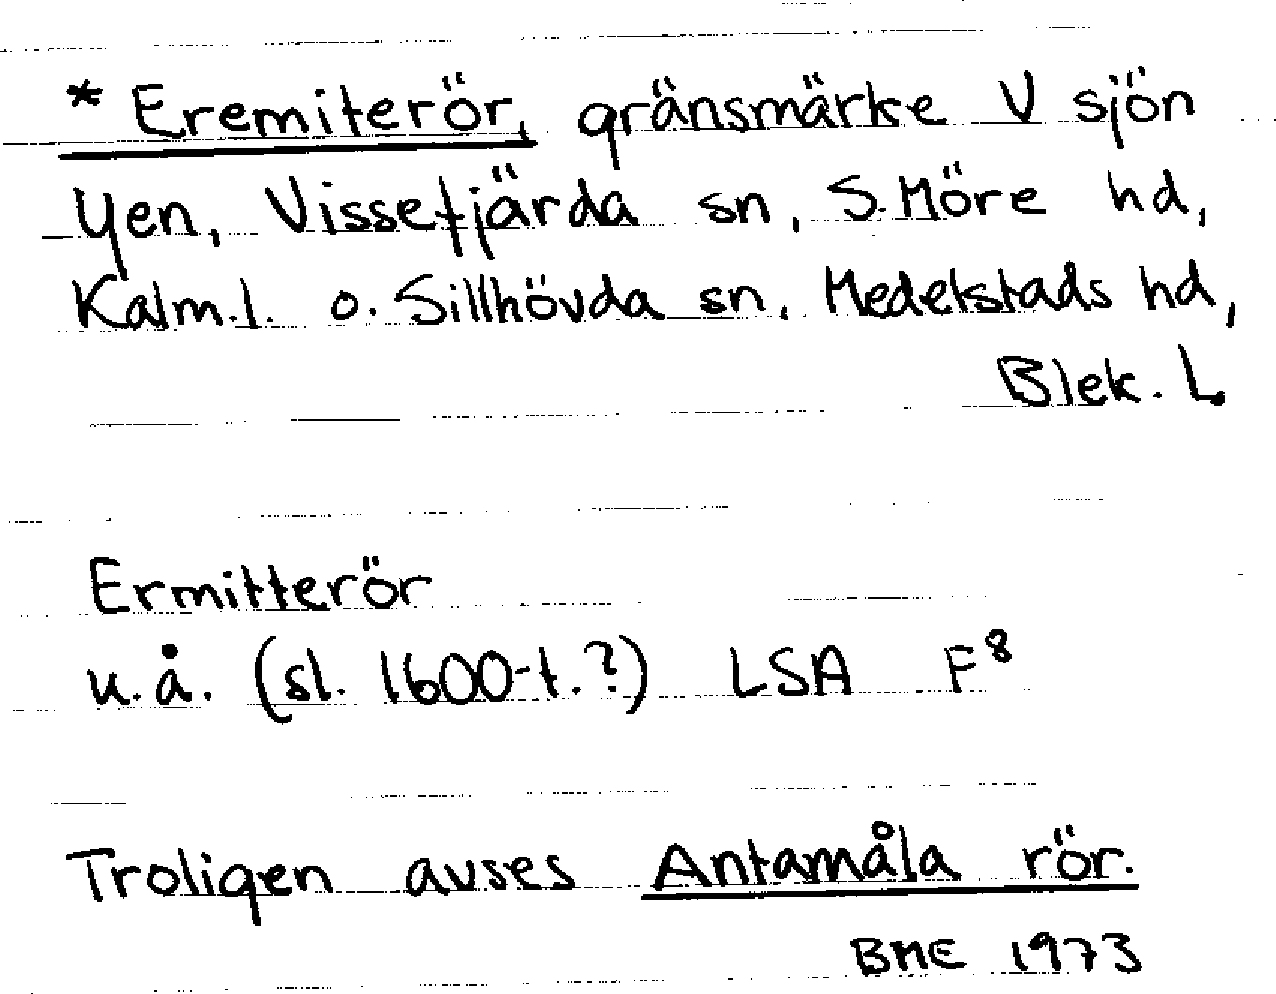 * Eremiterör, gränsmärke V sjön
Yen, Vissefjärda sn, S. Möre hd,
Kalm.l. o. Sillhövda sn, Medelstads hd,
Blek. L.
Ermitterör
u.å. (sl. 1600-t.?) LSA F⁸
Troligen avses Antamåla rör.
BME 1973